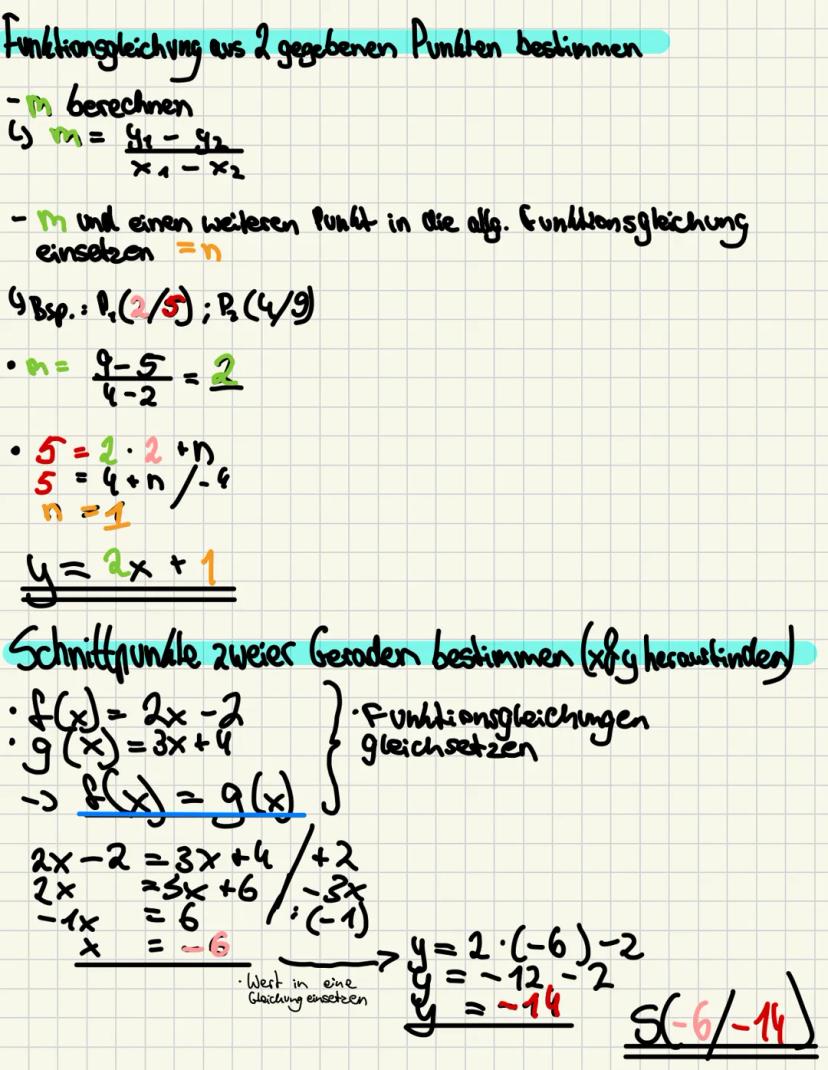 Funktionsgleichung aus 2 gegebenen Punkten bestimmen
- m berechnen
↳ m = y₁ - y₂ / x₁ - x₂
- m und einen weiteren Punkt in die allg. Funktionsgleichung
einsetzen = n
↳ Bsp.: P₁(2/5) ; P₂(4/9)
• m = 9-5 / 4-2 = 2
• 5 = 2 · 2 + n
5 = 4 + n /-4
n = 1
y = 2x + 1
Schnittpunkte zweier Geraden bestimmen (x&y herausfinden)
• f(x) = 2x - 2
• g(x) = 3x + 4
-> f(x) = g(x)
• Funktionsgleichungen
gleichsetzen
2x - 2 = 3x + 4 / +2
2x = 3x + 6 / -3x
-1x = 6 / : (-1)
x = -6
• Wert in eine
Gleichung einsetzen
y = 2 · (-6) - 2
y = -12 - 2
y = -14
S(-6/-14)